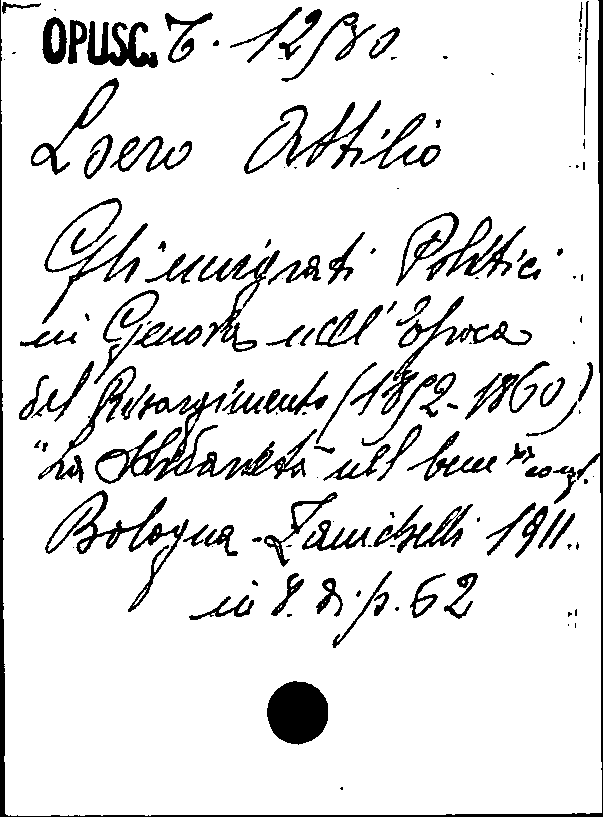 OPUSC. T. 12580.
Loero Attilio
Gli emigrati Politici
in Genova nell'Epoca
del Risorgimento (1852-1860)
"La Solidarietà nel bene"
Bologna - Zanichelli 1911.
in 8. di p. 62